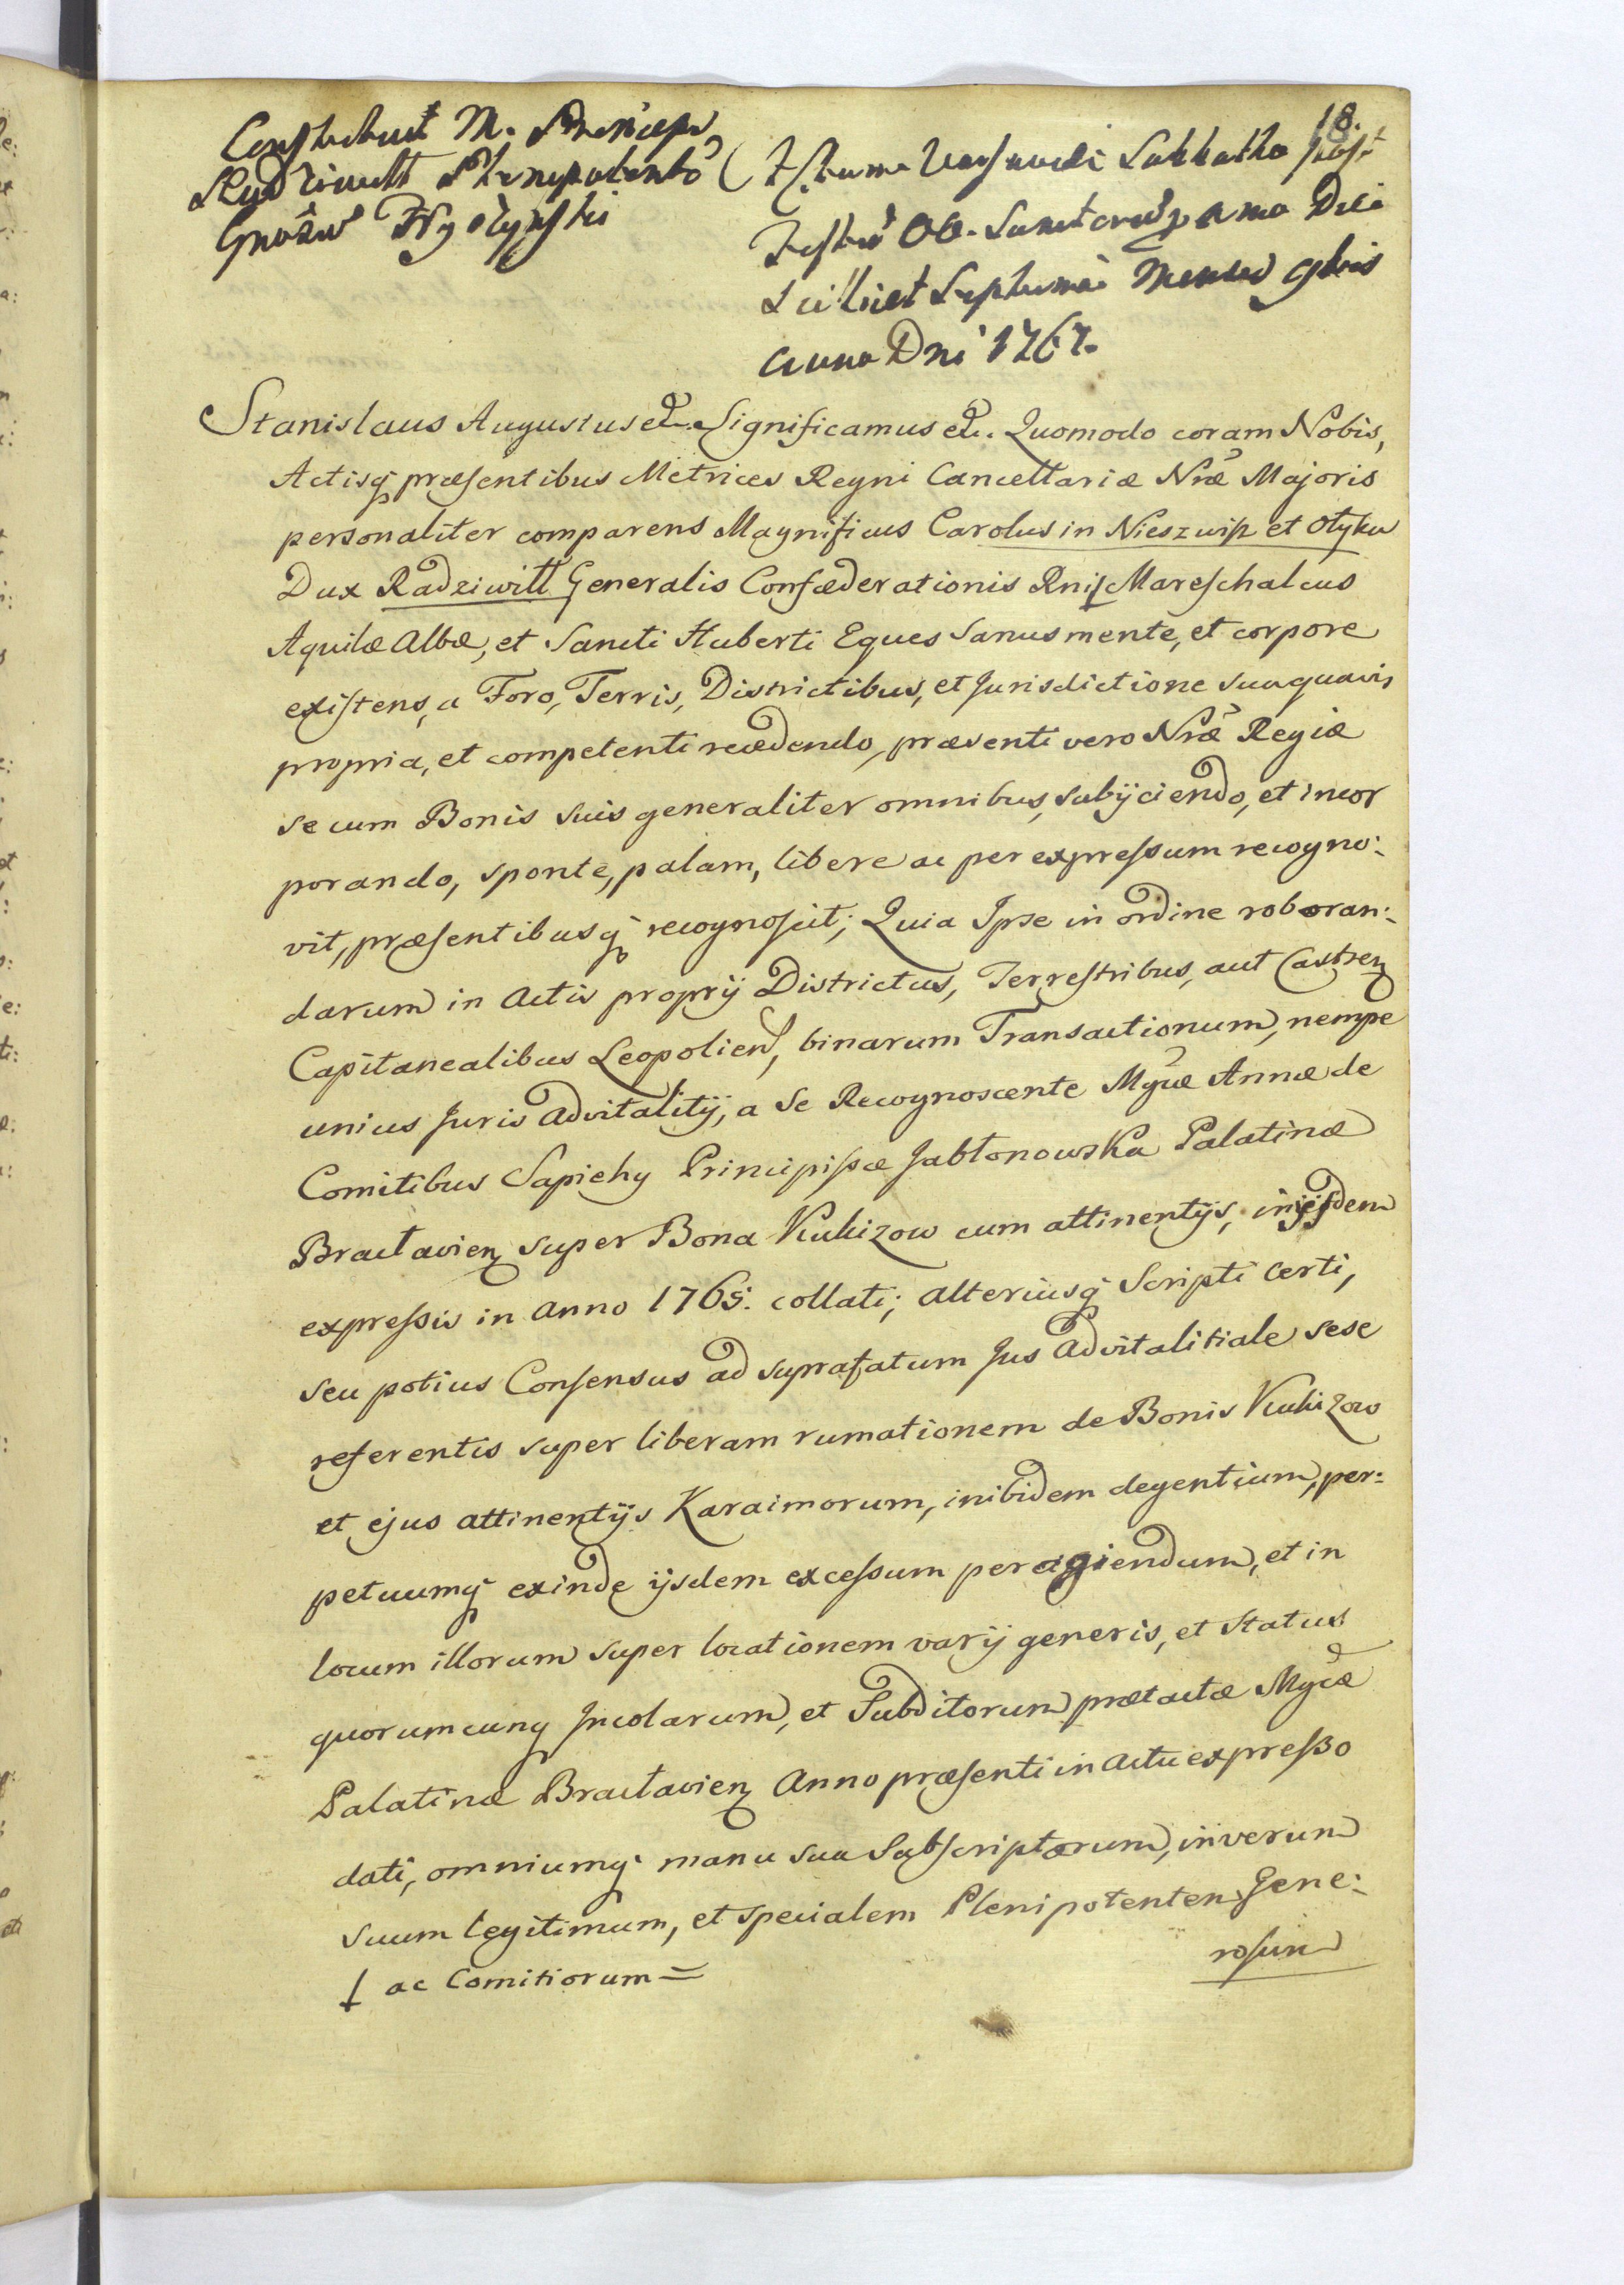 18.
Constituit M. Princeps
Radziwiłł Plenipotentẽ
Gnosũ Wyożyński
Actum Varsaviæ Sabbatho post
Festũ OO. Sanctorũ prima Die
Scilicet Septima Mensis 9bris
Anno Dni 1767.
Stanislaus Augustus etc. Significamus etc. Quomodo coram Nobis,
Actisq præsentibus Metrices Regni Cancellariæ Nræ Majoris
personaliter comparens Magnificus Carolus in Nieszwiß et Ołyka
Dux Radziwiłł Generalis Confæderationis Rni ƚ Mareschalcus
Aquilæ Albæ, et Sancti Huberti Eques Sanus mente, et corpore
existens, a Foro, Terris, Districtibus, et Jurisdictione sua quavis
propria, et competenti recedendo, præsenti vero Nræ Regiæ
se cum Bonis suis generaliter omnibus, subijciendo, et incor
porando, sponte, palam, libere ac per expressum recogno:
vit, præsentibusq recognoscit; Quia Ipse in ordine roboran:
darum in Actis proprij Districtus, Terrestribus, aut Castren
Capitanealibus Leopolien, binarum Transactionum, nempe
unius Juris advitalitij, a se Recognoscente Mgcæ Annæ de
Comitibus Sapiehy Principissæ Jabłonowska Palatinæ
Bractavien super Bona Kukizow cum attinentijs, in ijsdem
expressis in Anno 1765. collati; alteriusq Scripti certi,
seu potius Consensus ad suprafatum Jus advitalitiale sese
referentis super liberam rumationem de Bonis Kukizow
et ejus attinentijs Karaimorum, inibidem degentium, per:
petuumq exinde ijsdem excessum peragiendum, et in
locum illorum super locationem varij generis, et Status
quorumcunq Incolarum, et Subditorum prætactæ Mgcæ
Palatinæ Bractavien Anno præsenti in Actu expresso
dati, omniumq manu sua Subscriptorum, in verum
suum legitimum, et specialem Plenipotentem Gene:
rosum
ƚ ac Comitiorum =